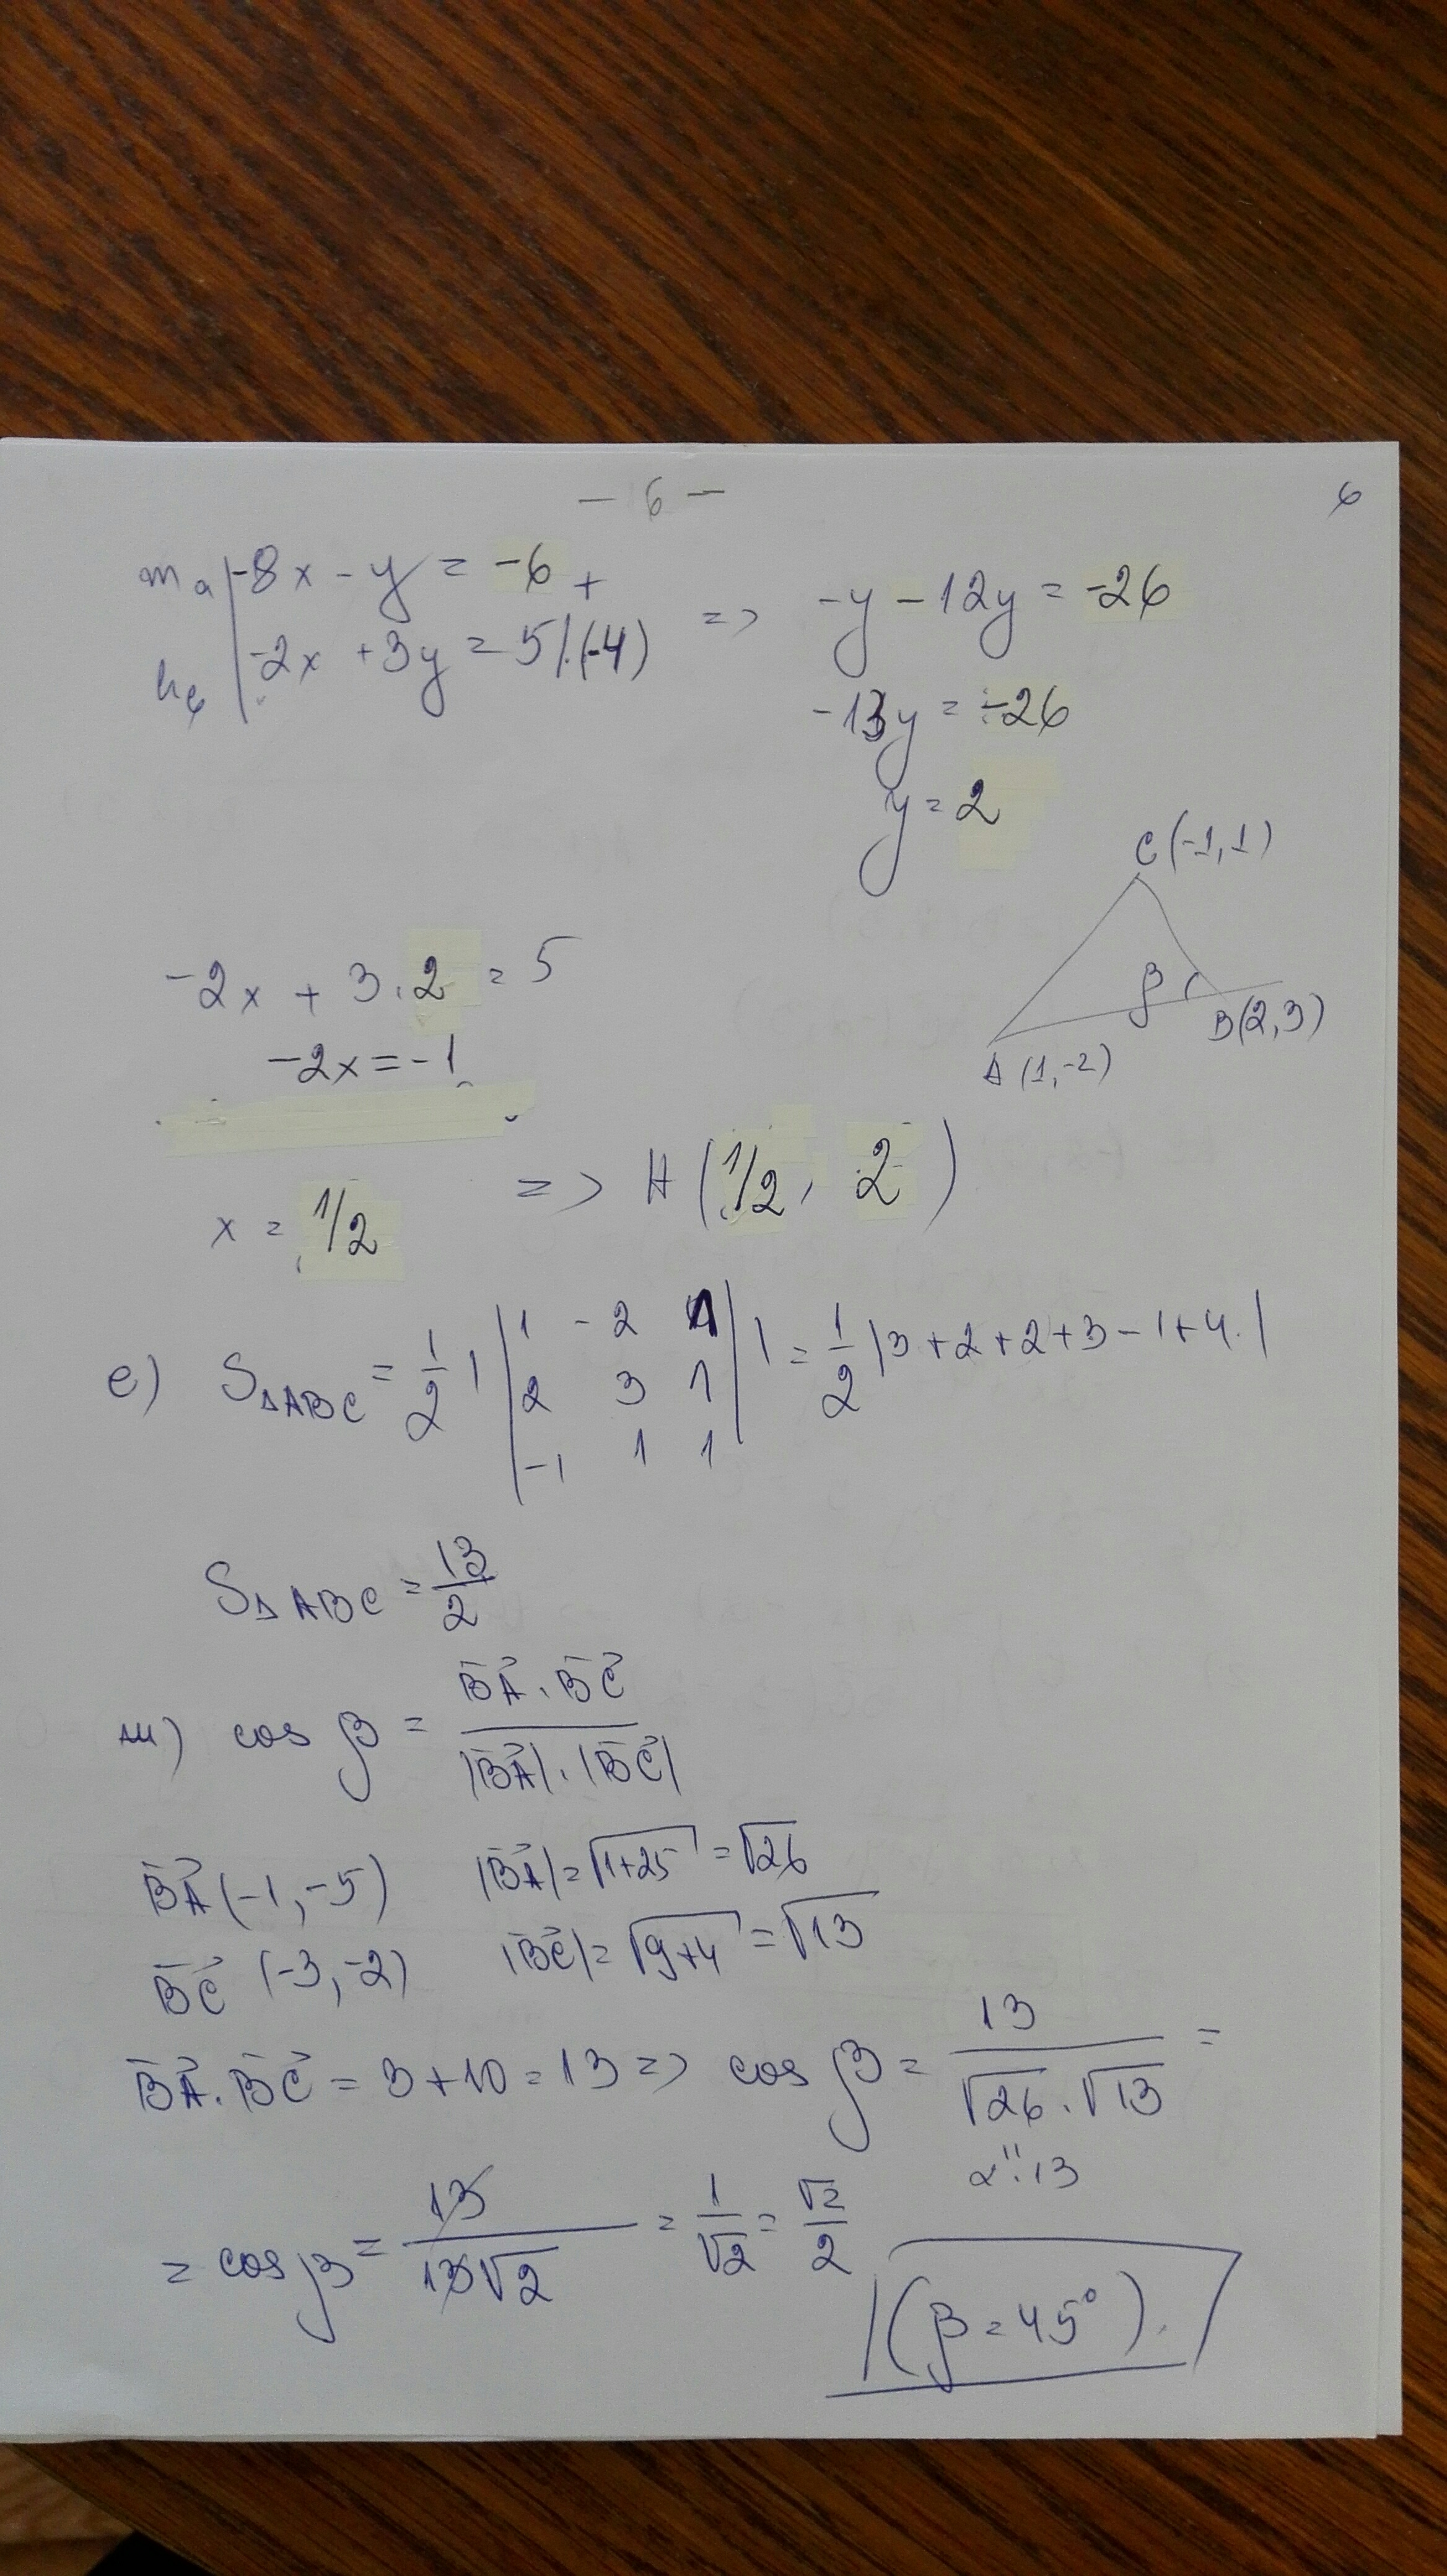 — 6 —
6
mₐ | -8x - y = -6 +
h_c | -2x + 3y = 5 /.(-4)
=> -y - 12y = -26
-13y = -26
y = 2
C(-1,1)
β
B(2,3)
A(1,-2)
-2x + 3.2 = 5
-2x = -1
x = 1/2 => H(1/2, 2)
е) S△ABC = 1/2 | |1 -2 1; 2 3 1; -1 1 1| | = 1/2 |3+2+2+3-1+4.|
S△ABC = 13/2
ж) cos β = BA⃗.BC⃗ / |BA⃗|.|BC⃗|
BA⃗(-1,-5) |BA⃗| = √(1+25) = √26
BC⃗ (-3,-2) |BC⃗| = √(9+4) = √13
BA⃗.BC⃗ = 3+10 = 13 => cos β = 13 / √26.√13 =
" 2.13
= cos β = 13 / 13√2 = 1/√2 = √2/2
(β = 45°).